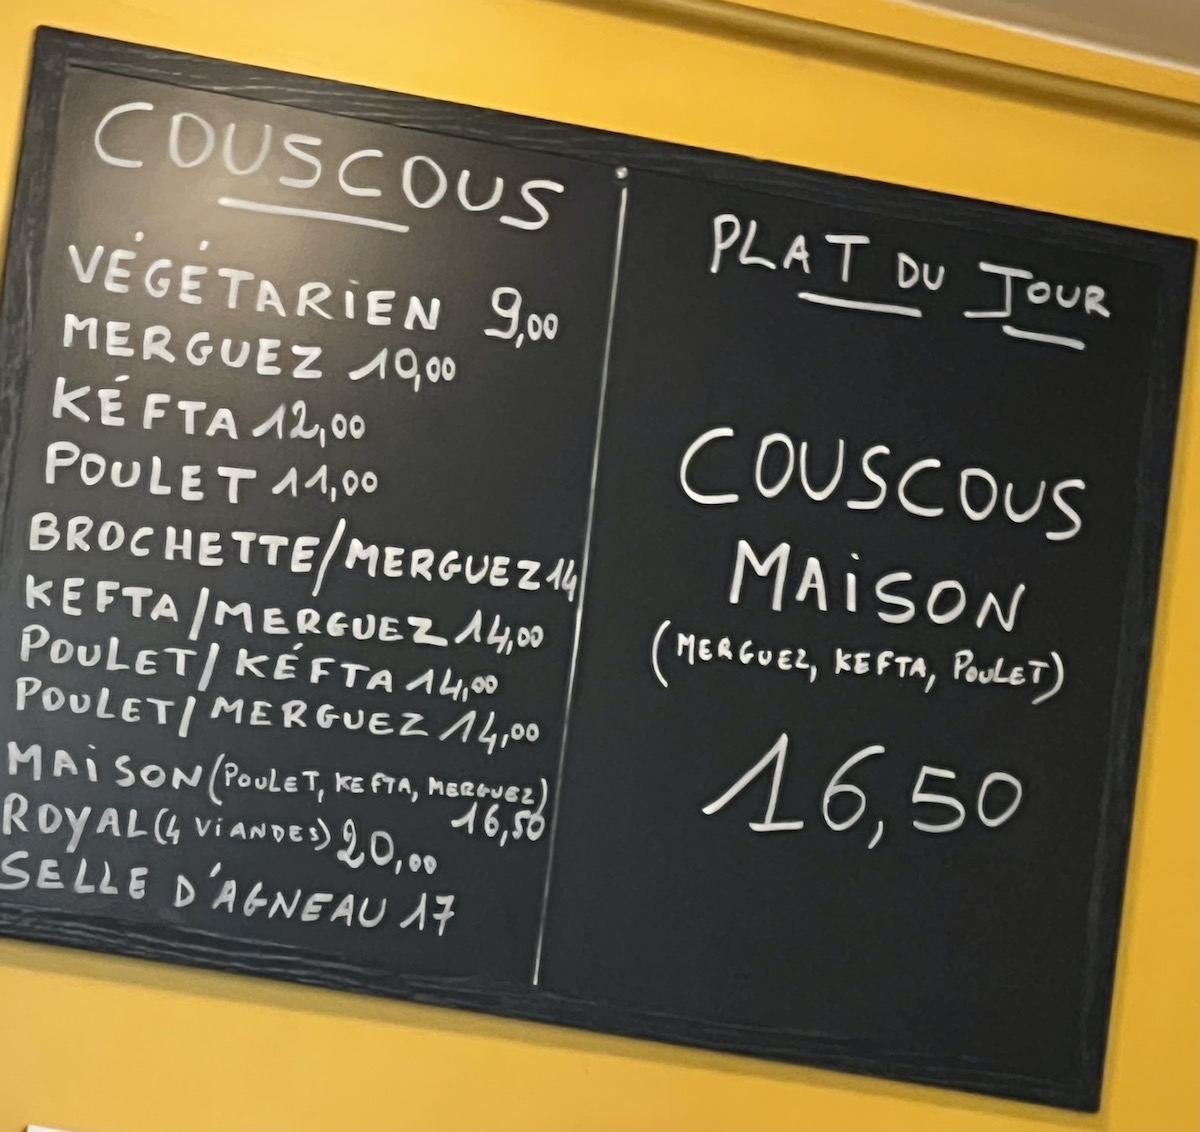 COUSCOUS
VÉGÉTARIEN 9,00
MERGUEZ 10,00
KÉFTA 12,00
POULET 11,00
BROCHETTE/MERGUEZ 14
KEFTA/MERGUEZ 14,00
POULET/KÉFTA 14,00
POULET/MERGUEZ 14,00
MAiSON (POULET, KEFTA, MERGUEZ)
16,50
ROYAL (4 ViANDES) 20,00
SELLE D'AGNEAU 17
PLAT DU JOUR
COUSCOUS
MAiSON
(MERGUEZ, KEFTA, POULET)
16,50